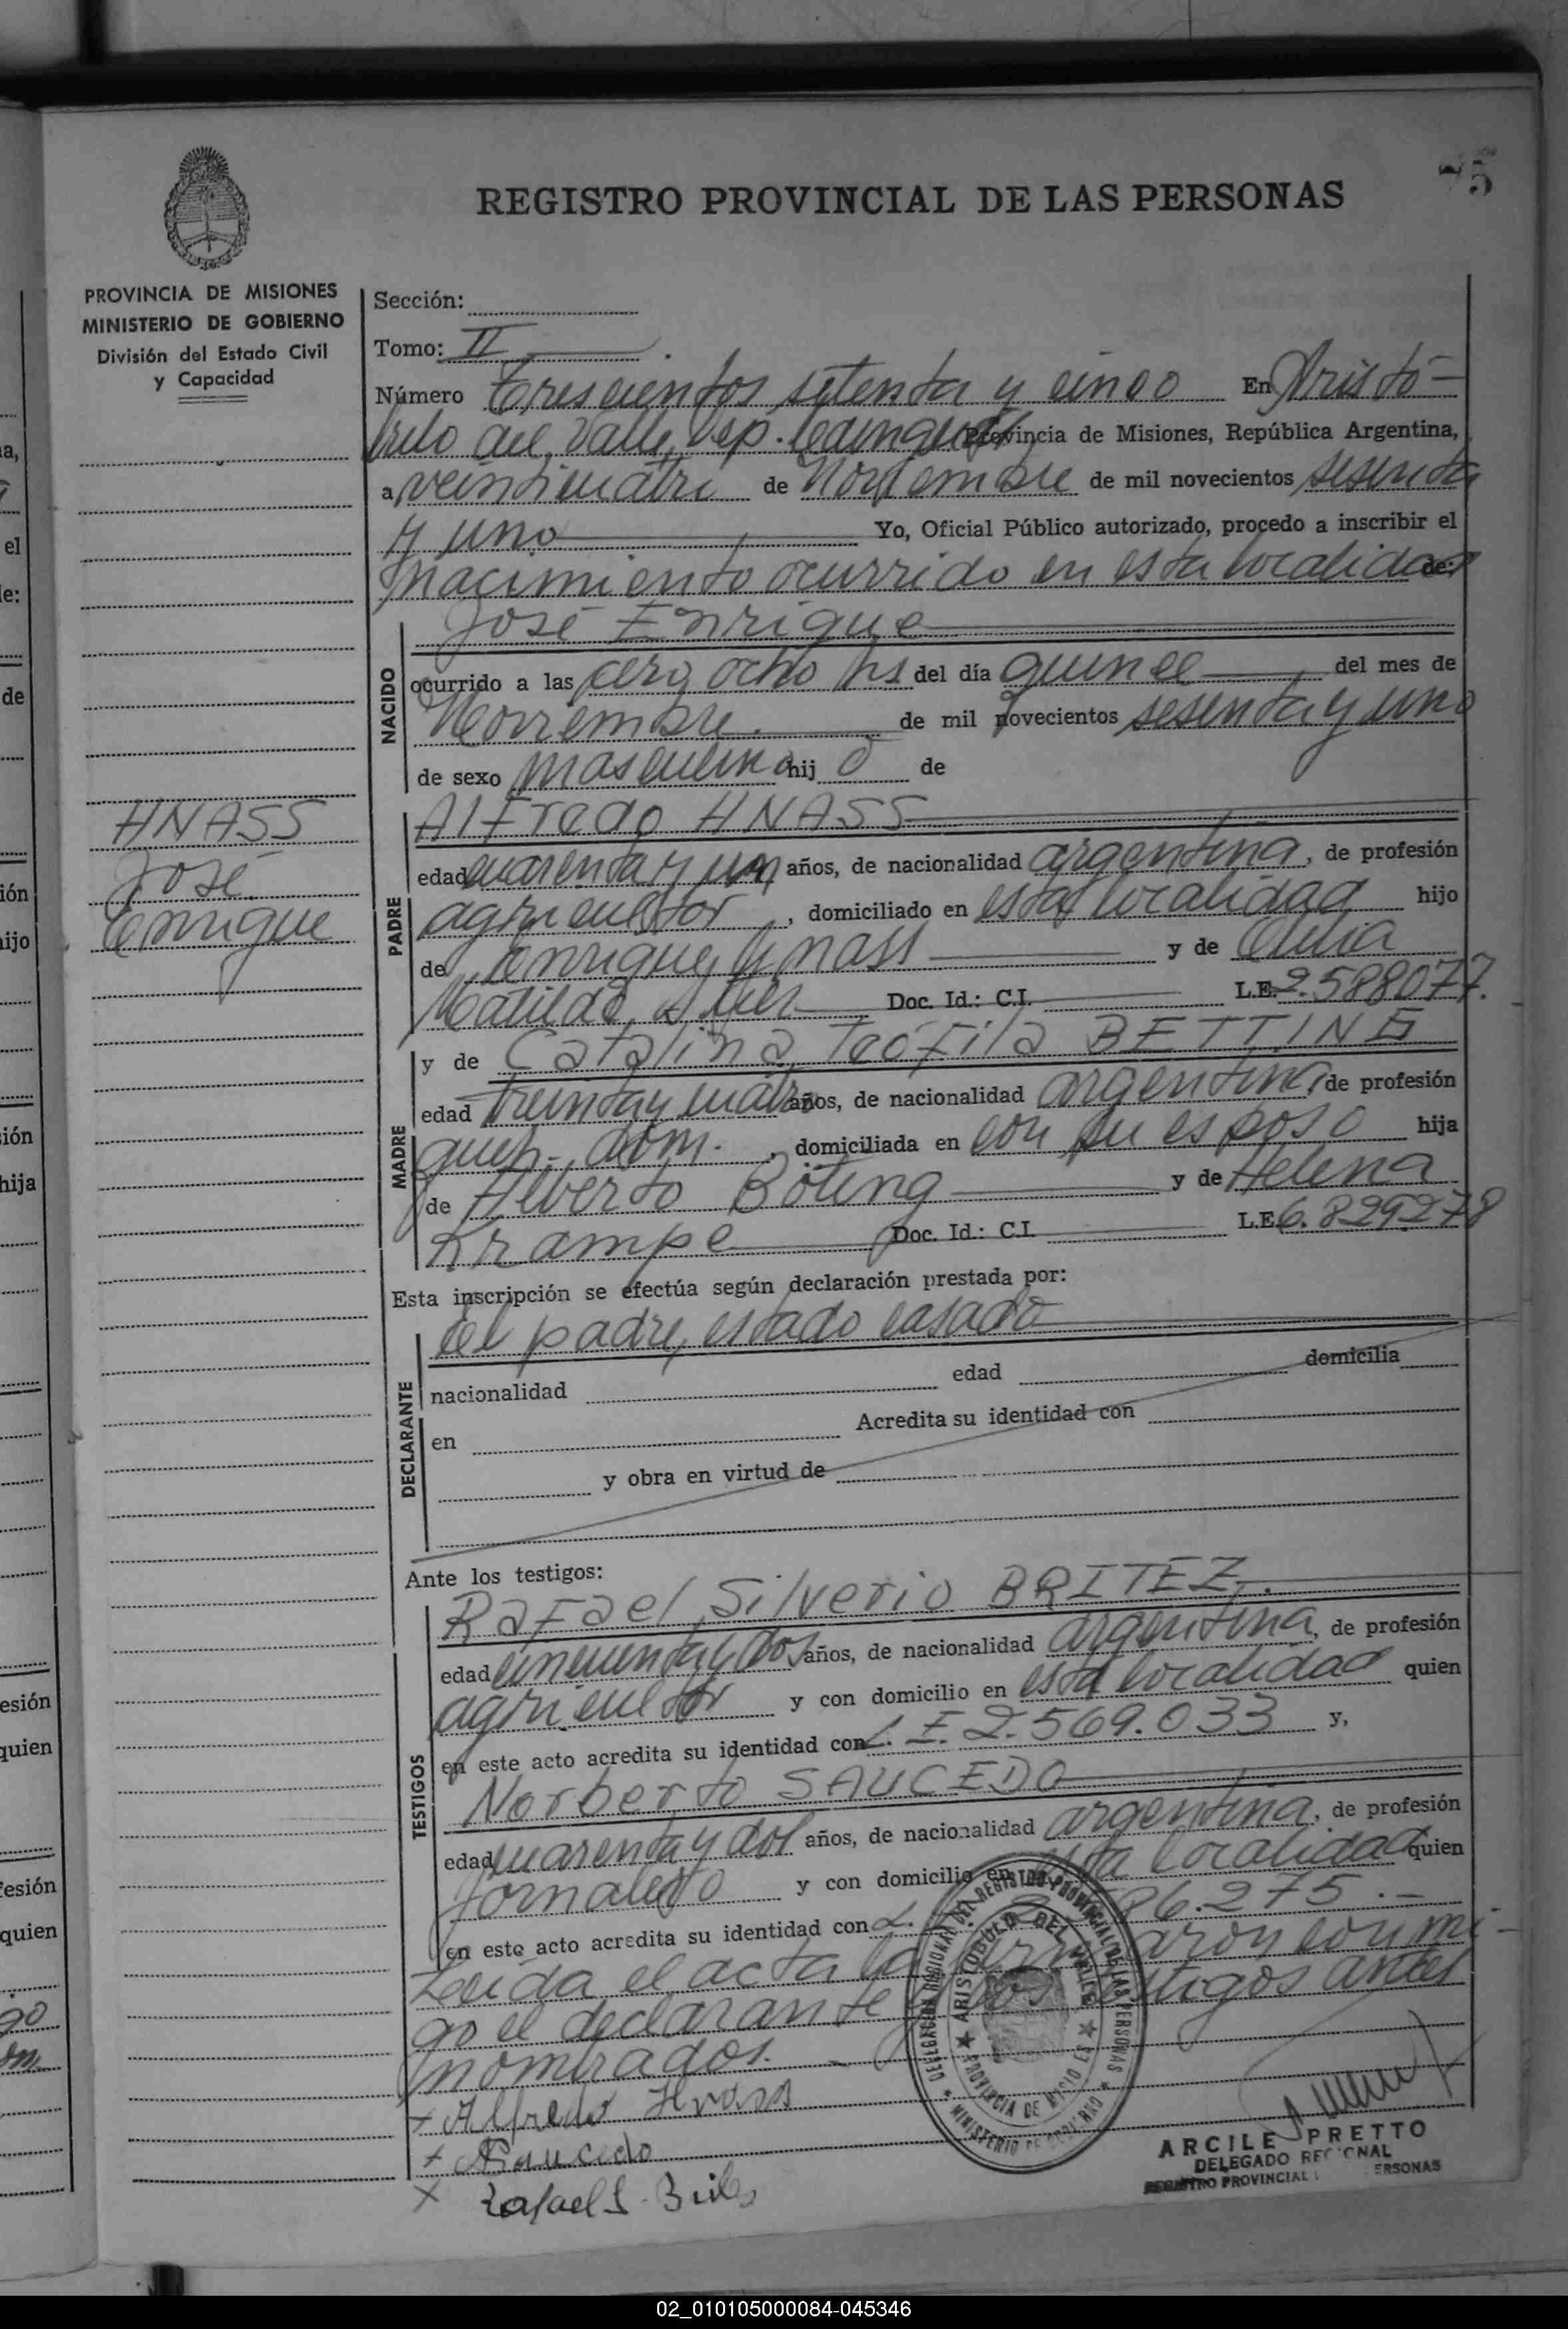 75
REGISTRO PROVINCIAL DE LAS PERSONAS
PROVINCIA DE MISIONES
MINISTERIO DE GOBIERNO
División del Estado Civil
y Capacidad
Sección:
Tomo: II
Número Trescientos setenta y cinco En Aristó-
bulo del Valle, Dep. Provincia de Misiones, República Argentina,
a veinticuatro de Noviembre de mil novecientos sesenta
y uno Yo, Oficial Público autorizado, procedo a inscribir el
nacimiento ocurrido en esta localidad de:
José Enrique
NACIDO
ocurrido a las cero ocho hs del día quince del mes de
Noviembre. de mil novecientos sesenta y uno
de sexo masculino hij o de
HNASS
José
Enrique
Alfredo HNASS
PADRE
edad cuarenta y un años, de nacionalidad argentina, de profesión
agricultor, domiciliado en esta localidad hijo
de Enrique Hnass y de
Matilde Doc. Id.: C.I. L.E. 2.588077.
y de Catalina Teófila BETTING
MADRE
edad treinta y cuatro años, de nacionalidad argentina, de profesión
queh. dom., domiciliada en con su esposo hija
de Alberto Böting y de Helena
Krampe Doc. Id.: C.I. L.E. 6.829278
Esta inscripción se efectúa según declaración prestada por:
El padre, estado casado
DECLARANTE
nacionalidad edad domicilia
en Acredita su identidad con
y obra en virtud de
Ante los testigos:
TESTIGOS
Rafael Silverio BRITEZ.
edad cincuenta y dos años, de nacionalidad argentina, de profesión
agricultor y con domicilio en esta localidad quien
en este acto acredita su identidad con L.E. 2.569.033 y,
Norberto SAUCEDO
edad cuarenta y dos años, de nacionalidad argentina, de profesión
Jornalero y con domicilio en esta localidad quien
en este acto acredita su identidad con L. 86.275.-
Leída el acta la firmaron conmi-
go el declarante y los testigos antes
nombrados. -
DELEGACION REGIONAL DEL REGISTRO PROVINCIAL DE LAS PERSONAS
ARISTOBULO DEL VALLE
PROVINCIA DE MISIONES
MINISTERIO DE GOBIERNO
+ Alfredo Hnass
+ NSaucedo
x Rafael S. Britez
ARCILE PRETTO
DELEGADO REGIONAL
REGISTRO PROVINCIAL PERSONAS
02_010105000084-045346